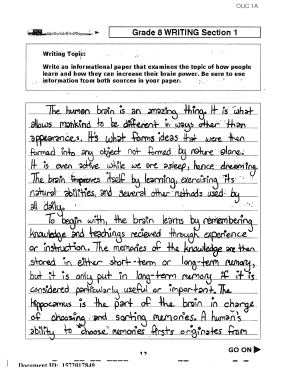 OUC 1A
Grade 8 WRITING Section 1
Writing Topic:
Write an informational paper that examines the topic of how people
learn and how they can increase their brain power. Be sure to use
information from both sources in your paper.
The human brain is an amazing thing. It is what
allows mankind to be different in ways other than
appearances. It's what forms ideas that were then
formed into any object not formed by nature alone.
It is even active while we are asleep, hence dreaming.
The brain improves itself by learning, exercising its
natural abilities, and several other methods used by
all daily.
To begin with, the brain learns by remembering
knowledge and teachings recieved through experience
or instruction. The memories of the knowledge are then
stored in either short-term or long-term memory,
but it is only put in long-term memory if it is
considered particularly useful or important. The
hippocamus is the part of the brain in charge
of choosing and sorting memories. A human's
ability to "choose" memories firsts originates from
GO ON
Document ID: 1572017849